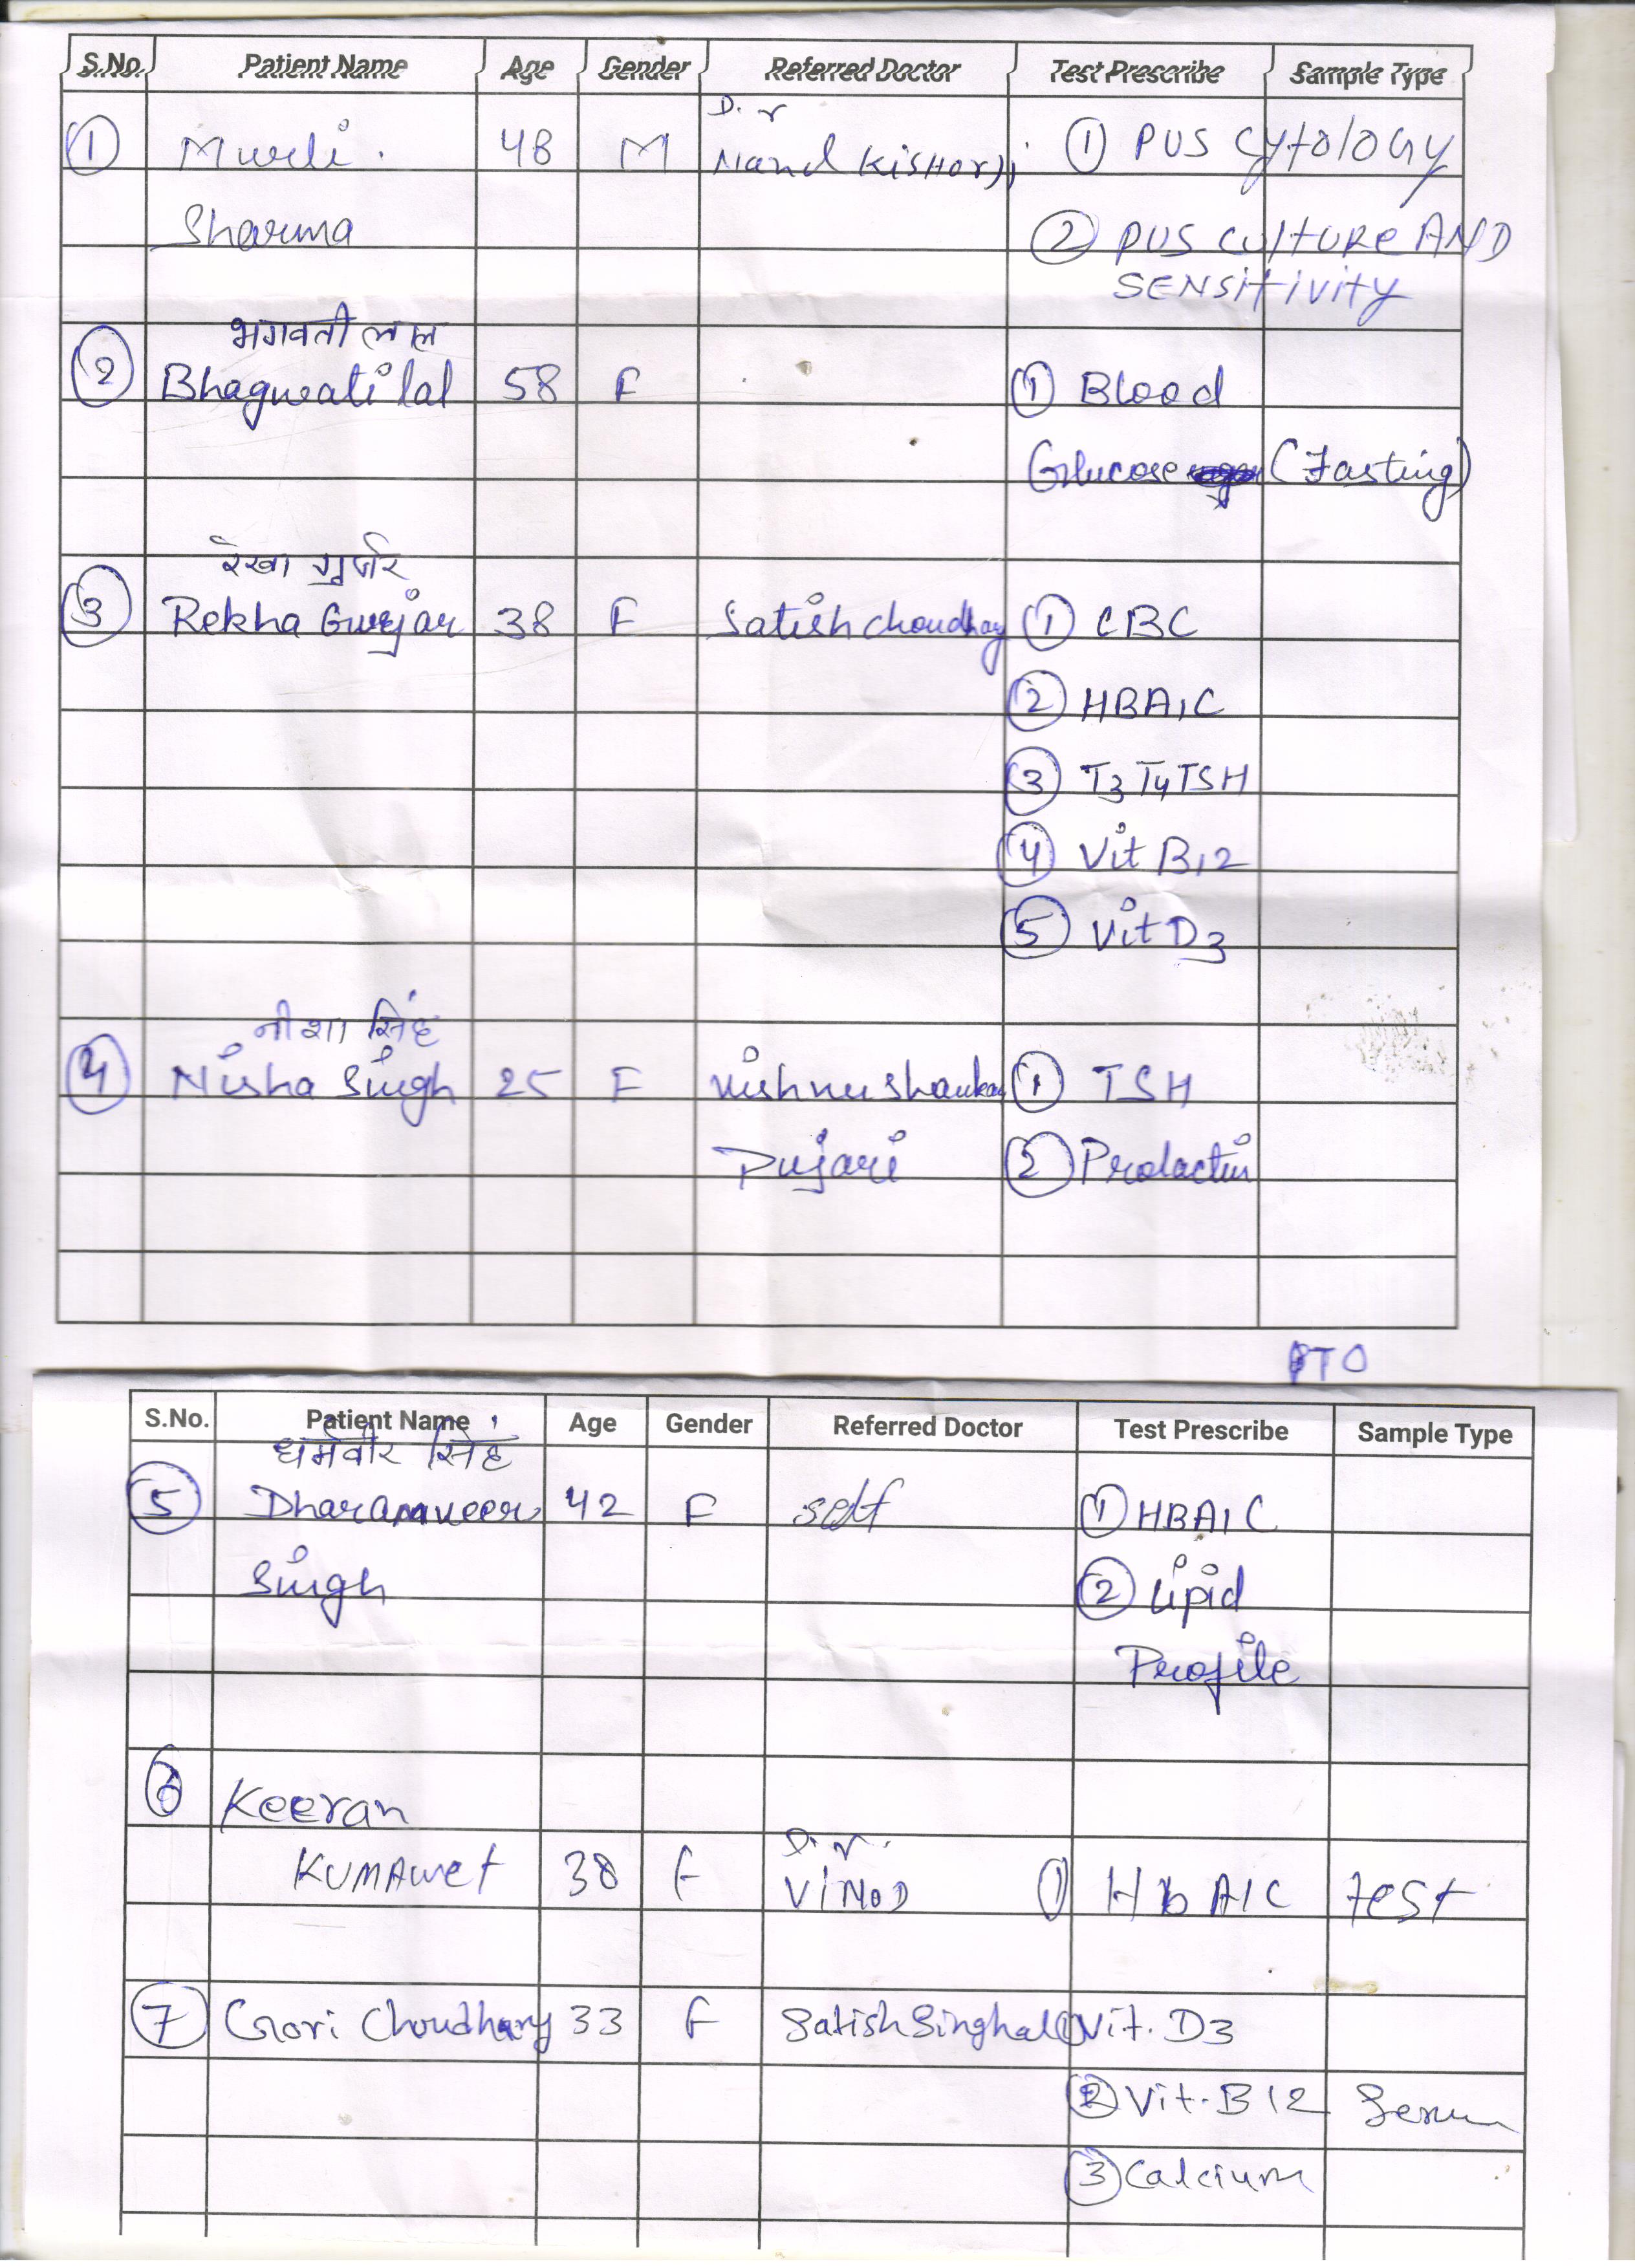 S.No. Patient Name Age Gender Referred Doctor Test Prescribe Sample Type
D.r
① Murli 48 M Nand Kishorji ① PUS CytologY
Sharma ② PUS CultURe AND
SENSitivity
भगवती लाल
② Bhagwati lal 58 F ① Blood
Glucose (Fasting)
रेखा गुर्जर
③ Rekha Gurjar 38 F Satish choudhary ① CBC
② HBA1C
③ T3 T4 TSH
④ Vit B12
⑤ Vit D3
नीशा सिंह
④ Nisha Singh 25 F Vishnu Shankar ① TSH
Pujari ② Prolactin
PTO
S.No. Patient Name Age Gender Referred Doctor Test Prescribe Sample Type
धर्मवीर सिंह
⑤ Dharamveer 42 F self ① HBA1C
Singh ② Lipid
Profile
⑥ Keeran
D.r.
KUMAwet 38 F ViNOD ① HbA1C test
⑦ Gori Choudhary 33 F Satish Singhal ① Vit. D3
② Vit. B12 Serum
③ Calcium